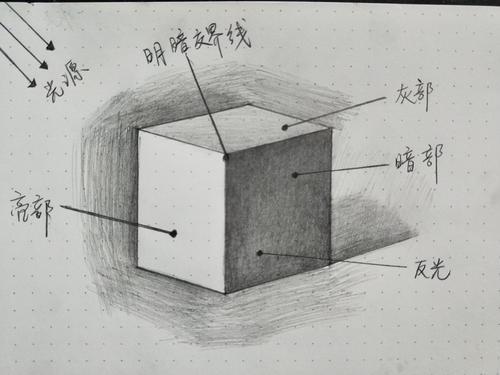 明暗交界线
光源
灰部
暗部
亮部
反光